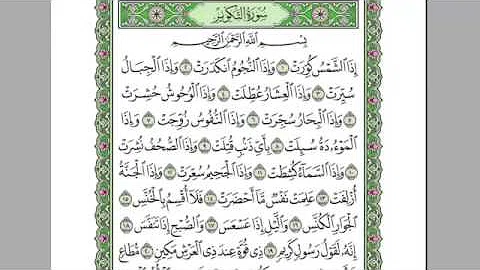 سُورَةُ التَّكْوِيرِ
بِسْمِ ٱللَّهِ ٱلرَّحْمَٰنِ ٱلرَّحِيمِ
إِذَا ٱلشَّمْسُ كُوِّرَتْ ١ وَإِذَا ٱلنُّجُومُ ٱنكَدَرَتْ ٢ وَإِذَا ٱلْجِبَالُ
سُيِّرَتْ ٣ وَإِذَا ٱلْعِشَارُ عُطِّلَتْ ٤ وَإِذَا ٱلْوُحُوشُ حُشِرَتْ
٥ وَإِذَا ٱلْبِحَارُ سُجِّرَتْ ٦ وَإِذَا ٱلنُّفُوسُ زُوِّجَتْ ٧ وَإِذَا
ٱلْمَوْءُۥدَةُ سُئِلَتْ ٨ بِأَيِّ ذَنۢبٍ قُتِلَتْ ٩ وَإِذَا ٱلصُّحُفُ نُشِرَتْ
١٠ وَإِذَا ٱلسَّمَآءُ كُشِطَتْ ١١ وَإِذَا ٱلْجَحِيمُ سُعِّرَتْ ١٢ وَإِذَا ٱلْجَنَّةُ
أُزْلِفَتْ ١٣ عَلِمَتْ نَفْسٌ مَّآ أَحْضَرَتْ ١٤ فَلَآ أُقْسِمُ بِٱلْخُنَّسِ ١٥
ٱلْجَوَارِ ٱلْكُنَّسِ ١٦ وَٱلَّيْلِ إِذَا عَسْعَسَ ١٧ وَٱلصُّبْحِ إِذَا تَنَفَّسَ ١٨
إِنَّهُۥ لَقَوْلُ رَسُولٍ كَرِيمٍ ١٩ ذِي قُوَّةٍ عِندَ ذِي ٱلْعَرْشِ مَكِينٍ ٢٠ مُّطَاعٍ